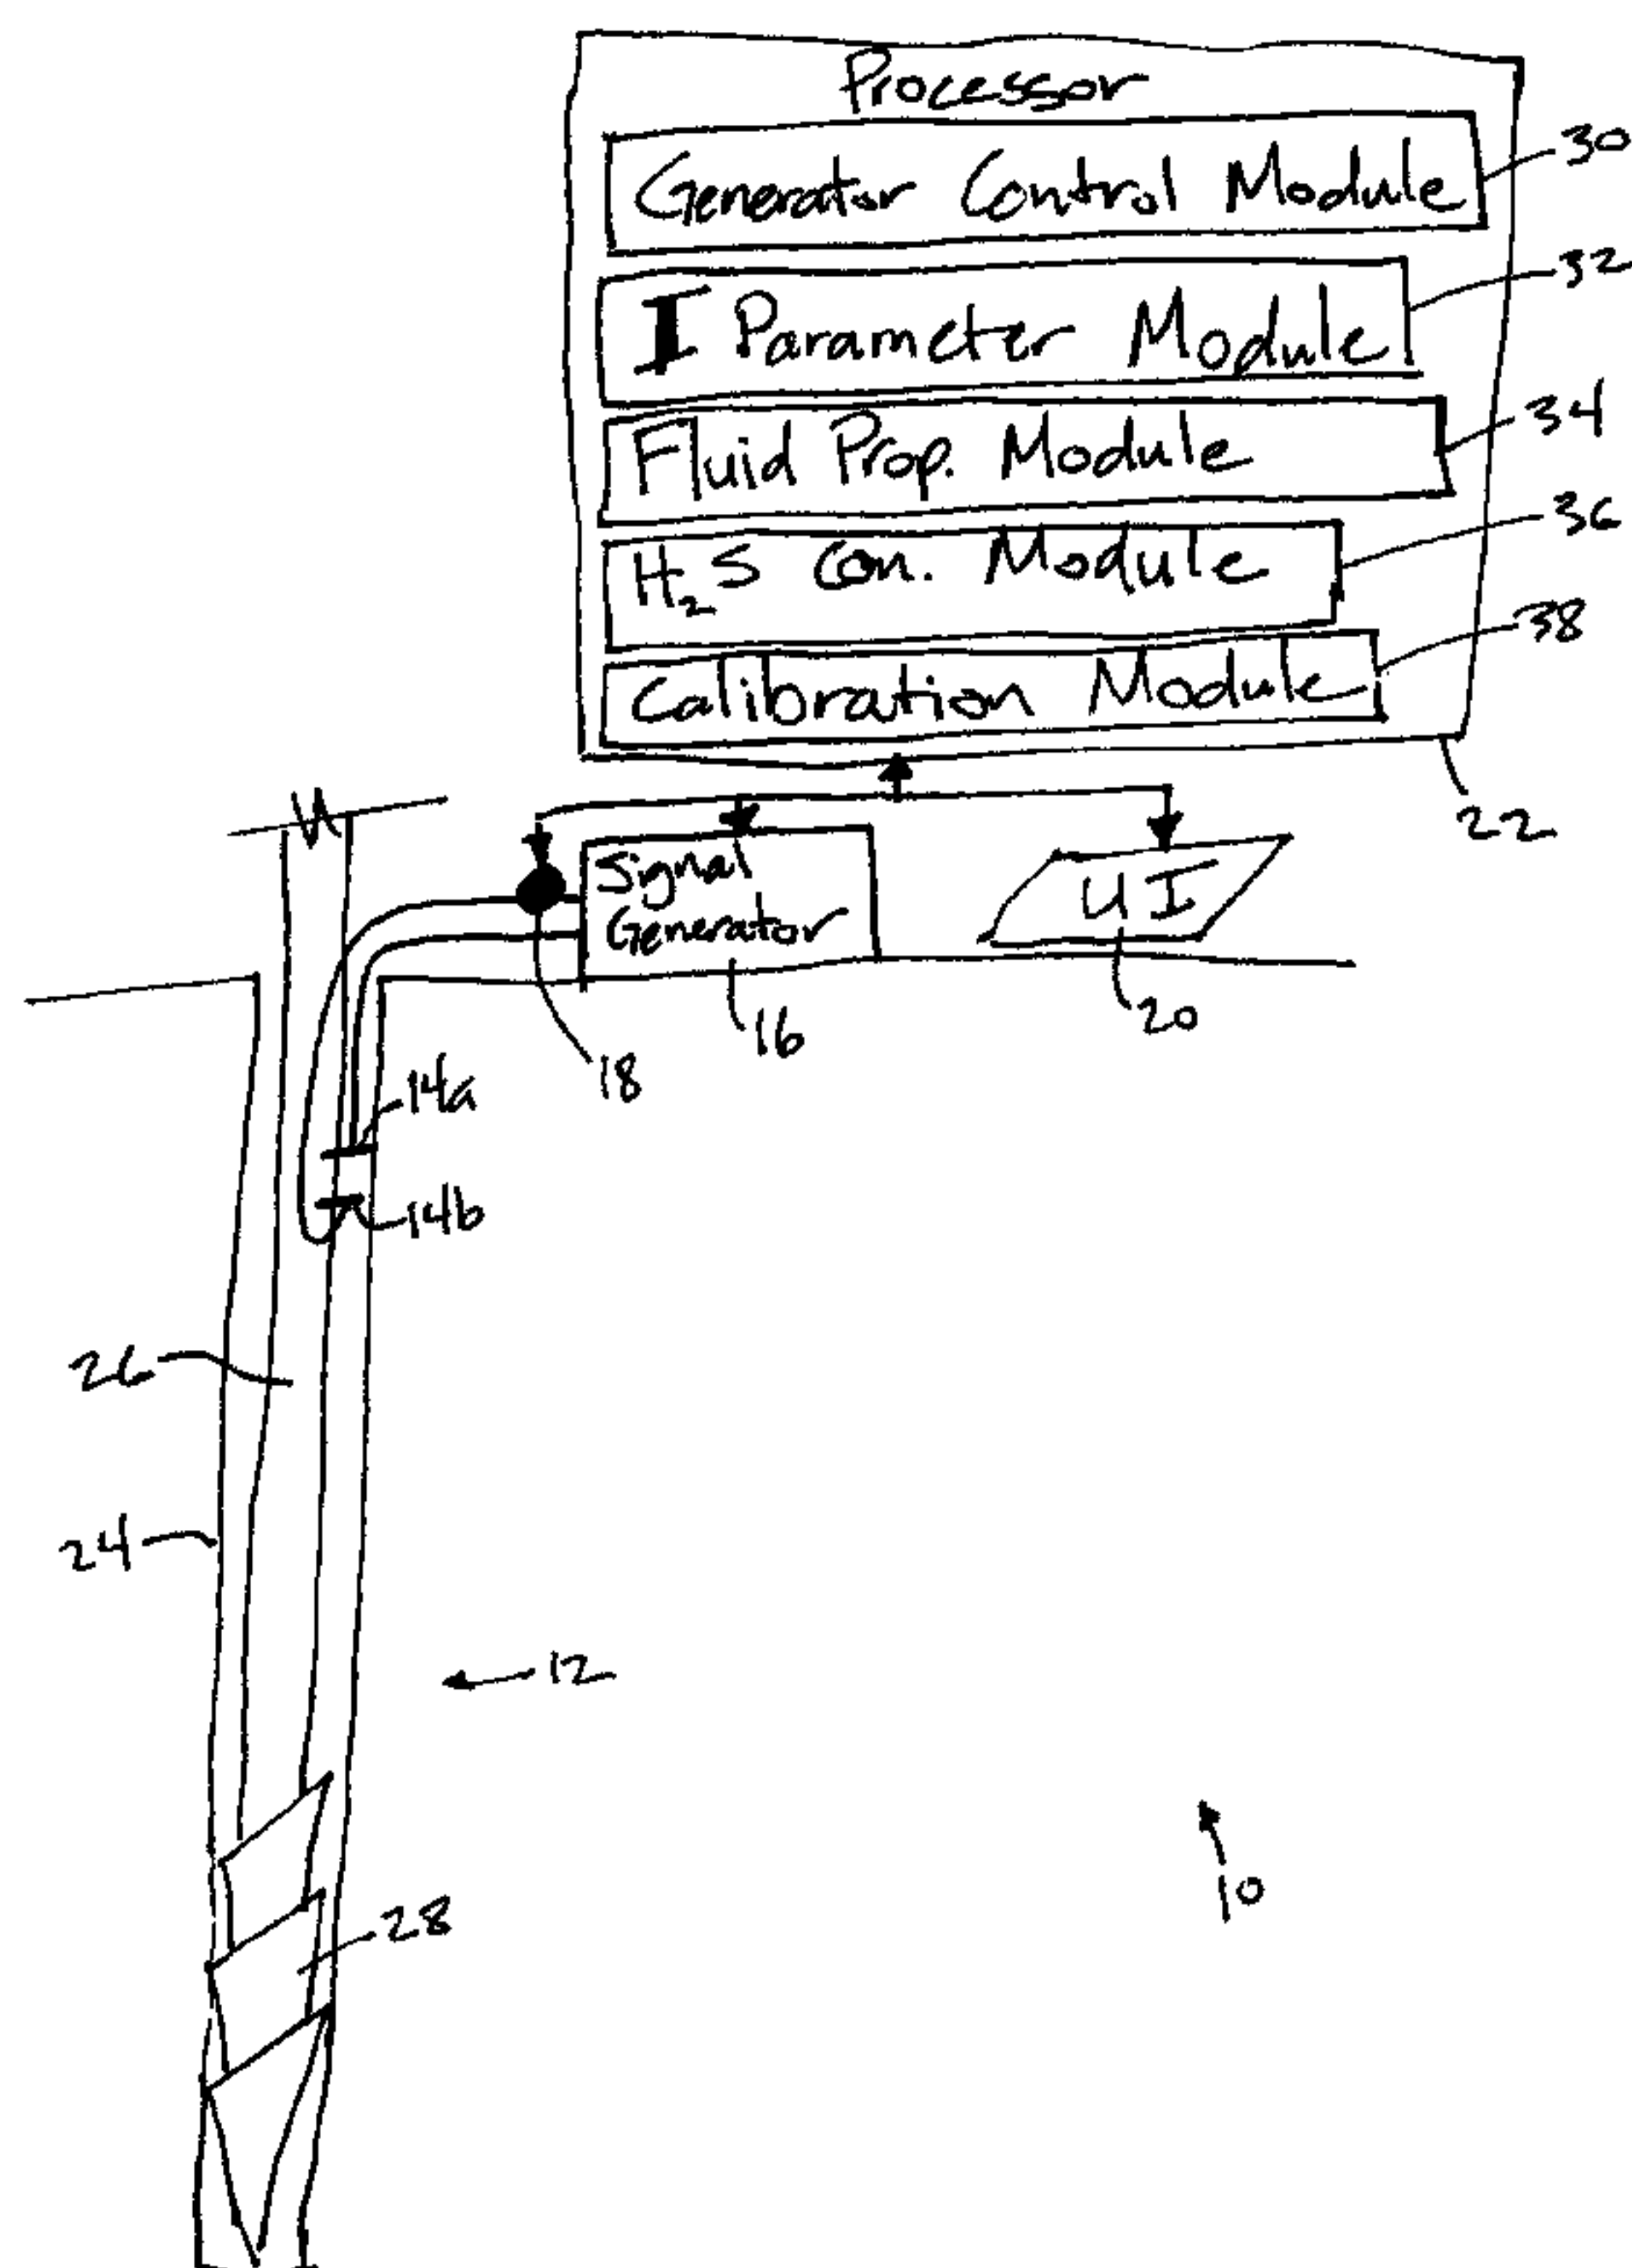 Processor
Generator Control Module
30
I Parameter Module
32
Fluid Prop. Module
34
H₂S Con. Module
36
Calibration Module
38
22
Signal
Generator
UI
18
16
20
14a
14b
26
24
12
10
28